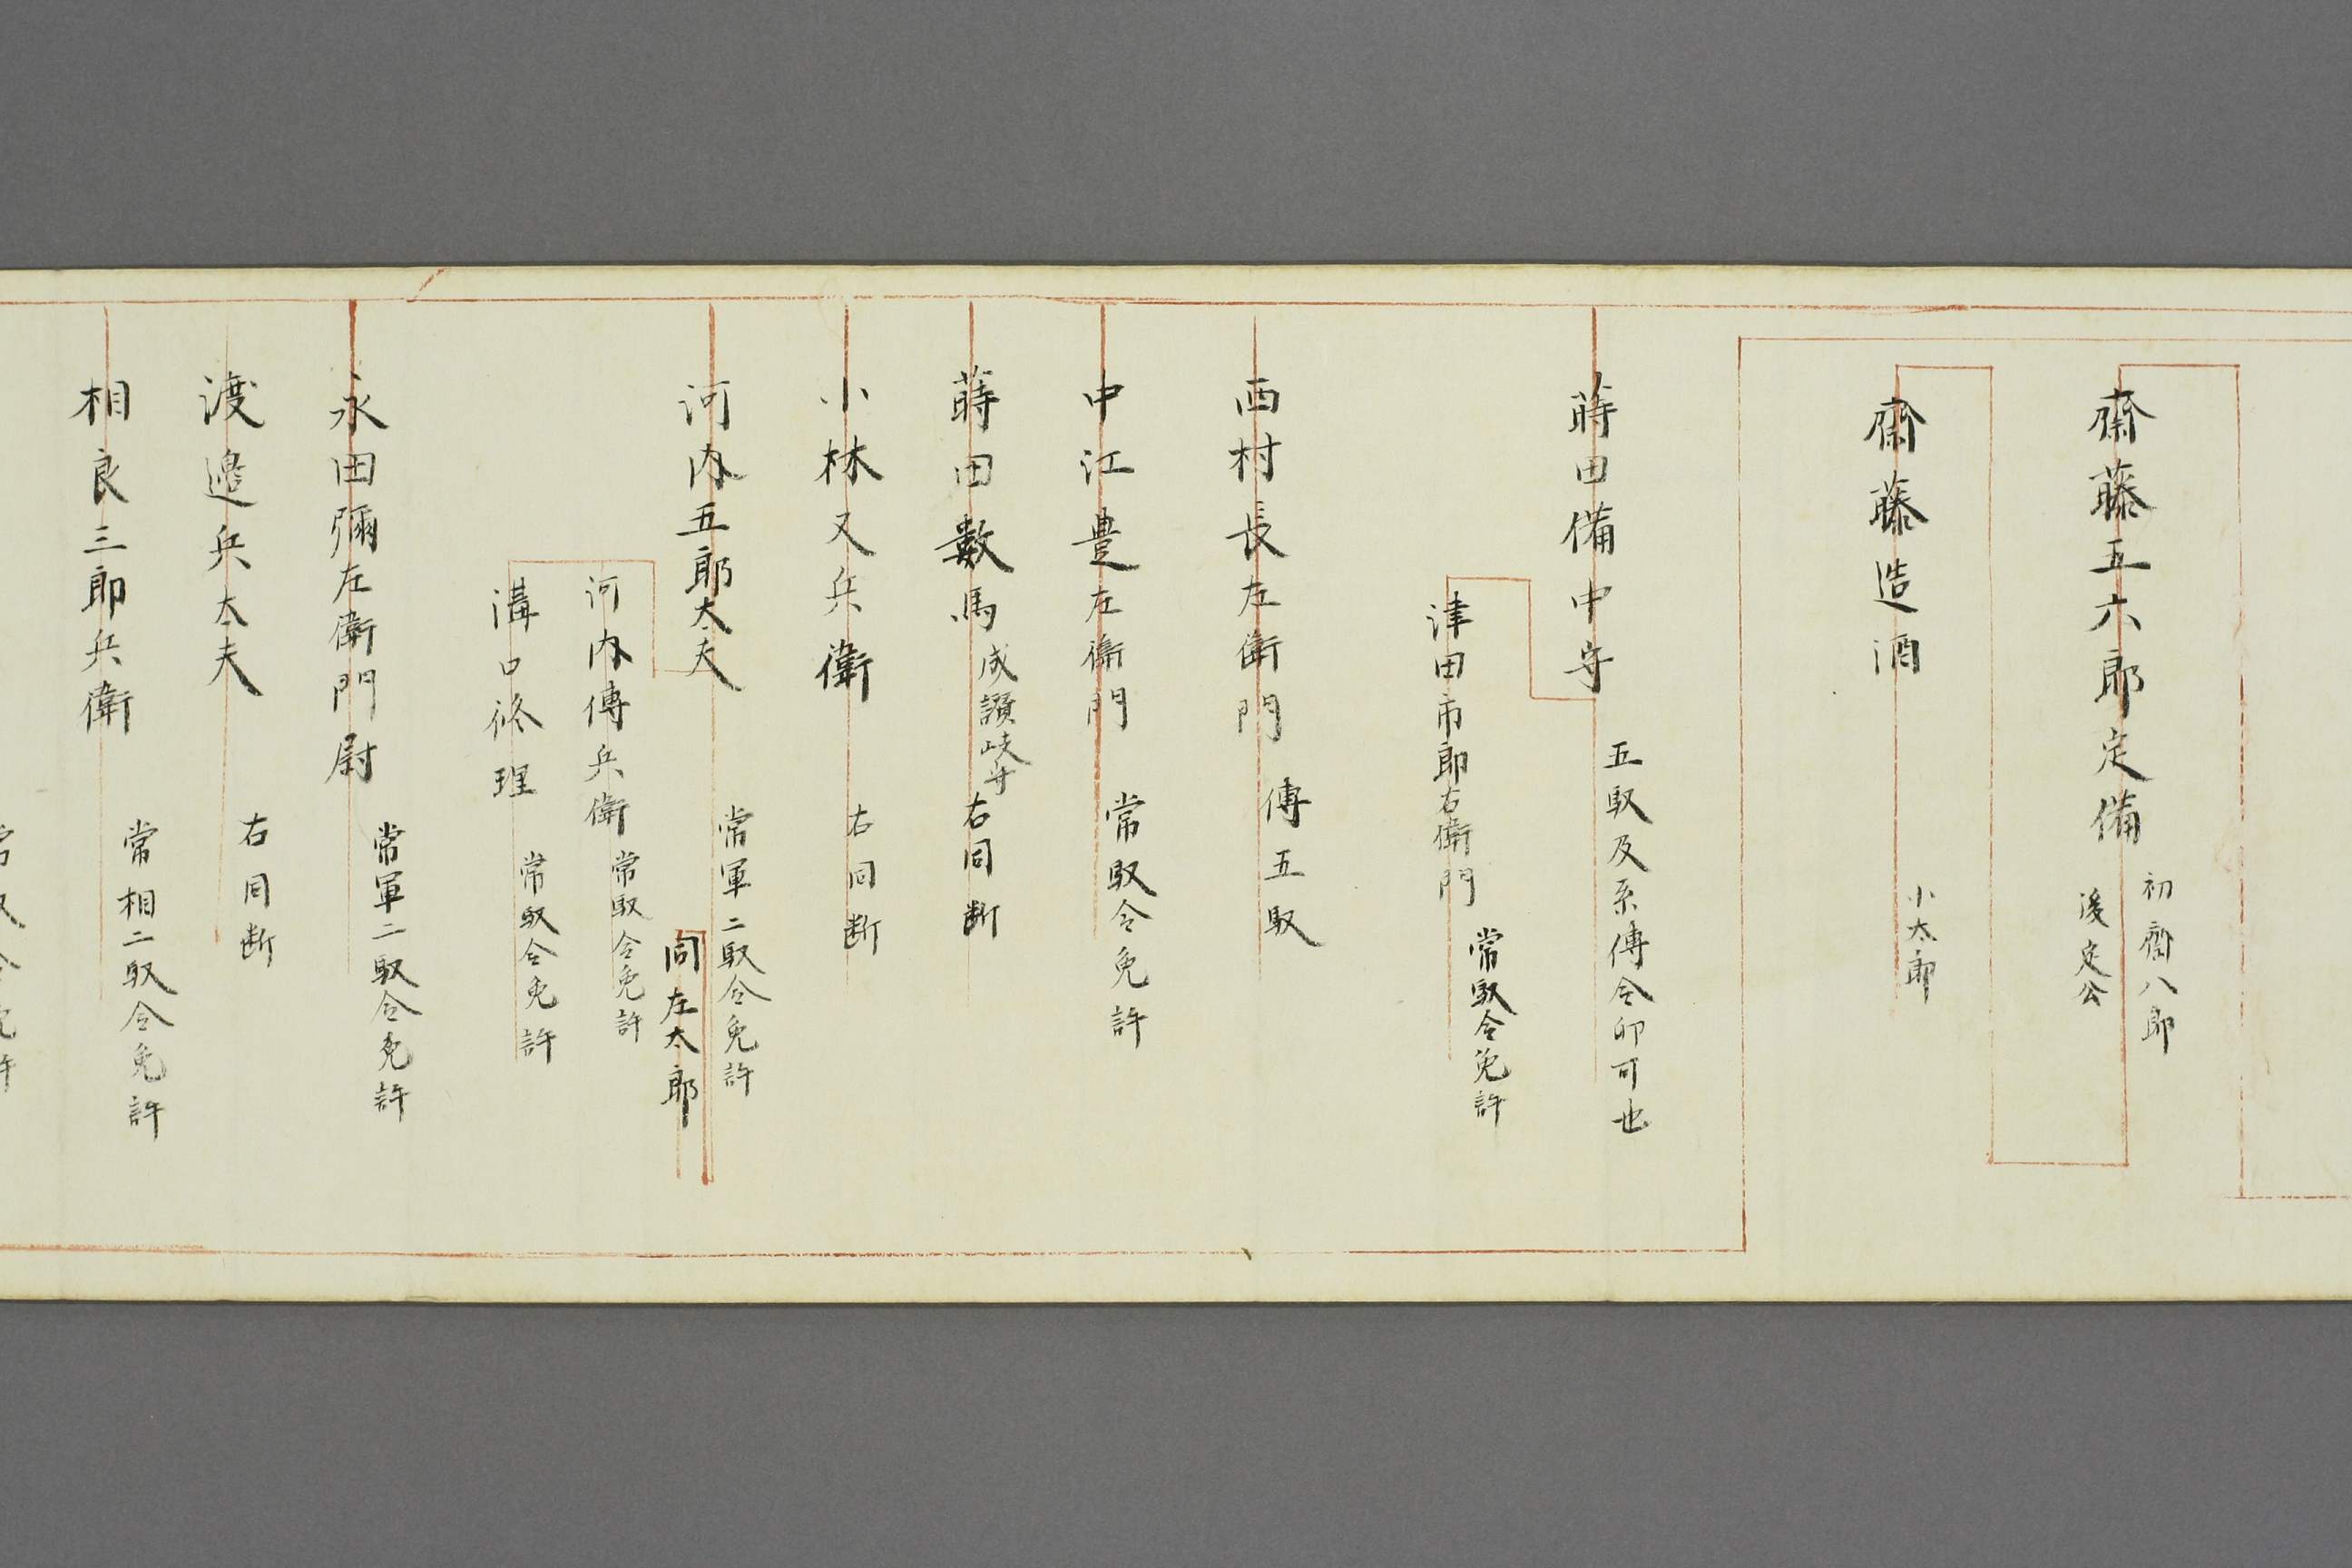 齋藤五六郎定備
初齋八郎
後定公
齋藤造酒
小太郎
蒔田備中守
五馭及系傳令卯可也
津田市郎右衛門
常馭令免許
西村長左衛門
傳五馭
中江豊左衛門
常馭令免許
蒔田數馬
成讃岐守
右同断
小林又兵衛
右同断
河内五郎太夫
常軍二馭令免許
同左太郎
河内傳兵衛
常馭令免許
溝口修理
常馭令免許
永田彌左衛門尉
常軍二馭令免許
渡邉兵太夫
右同断
相良三郎兵衛
常相二馭令免許